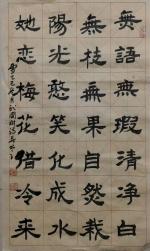 無語無瑕清净白
無枝無果自然栽
陽光憨笑化成水
她恋梅花借冷來